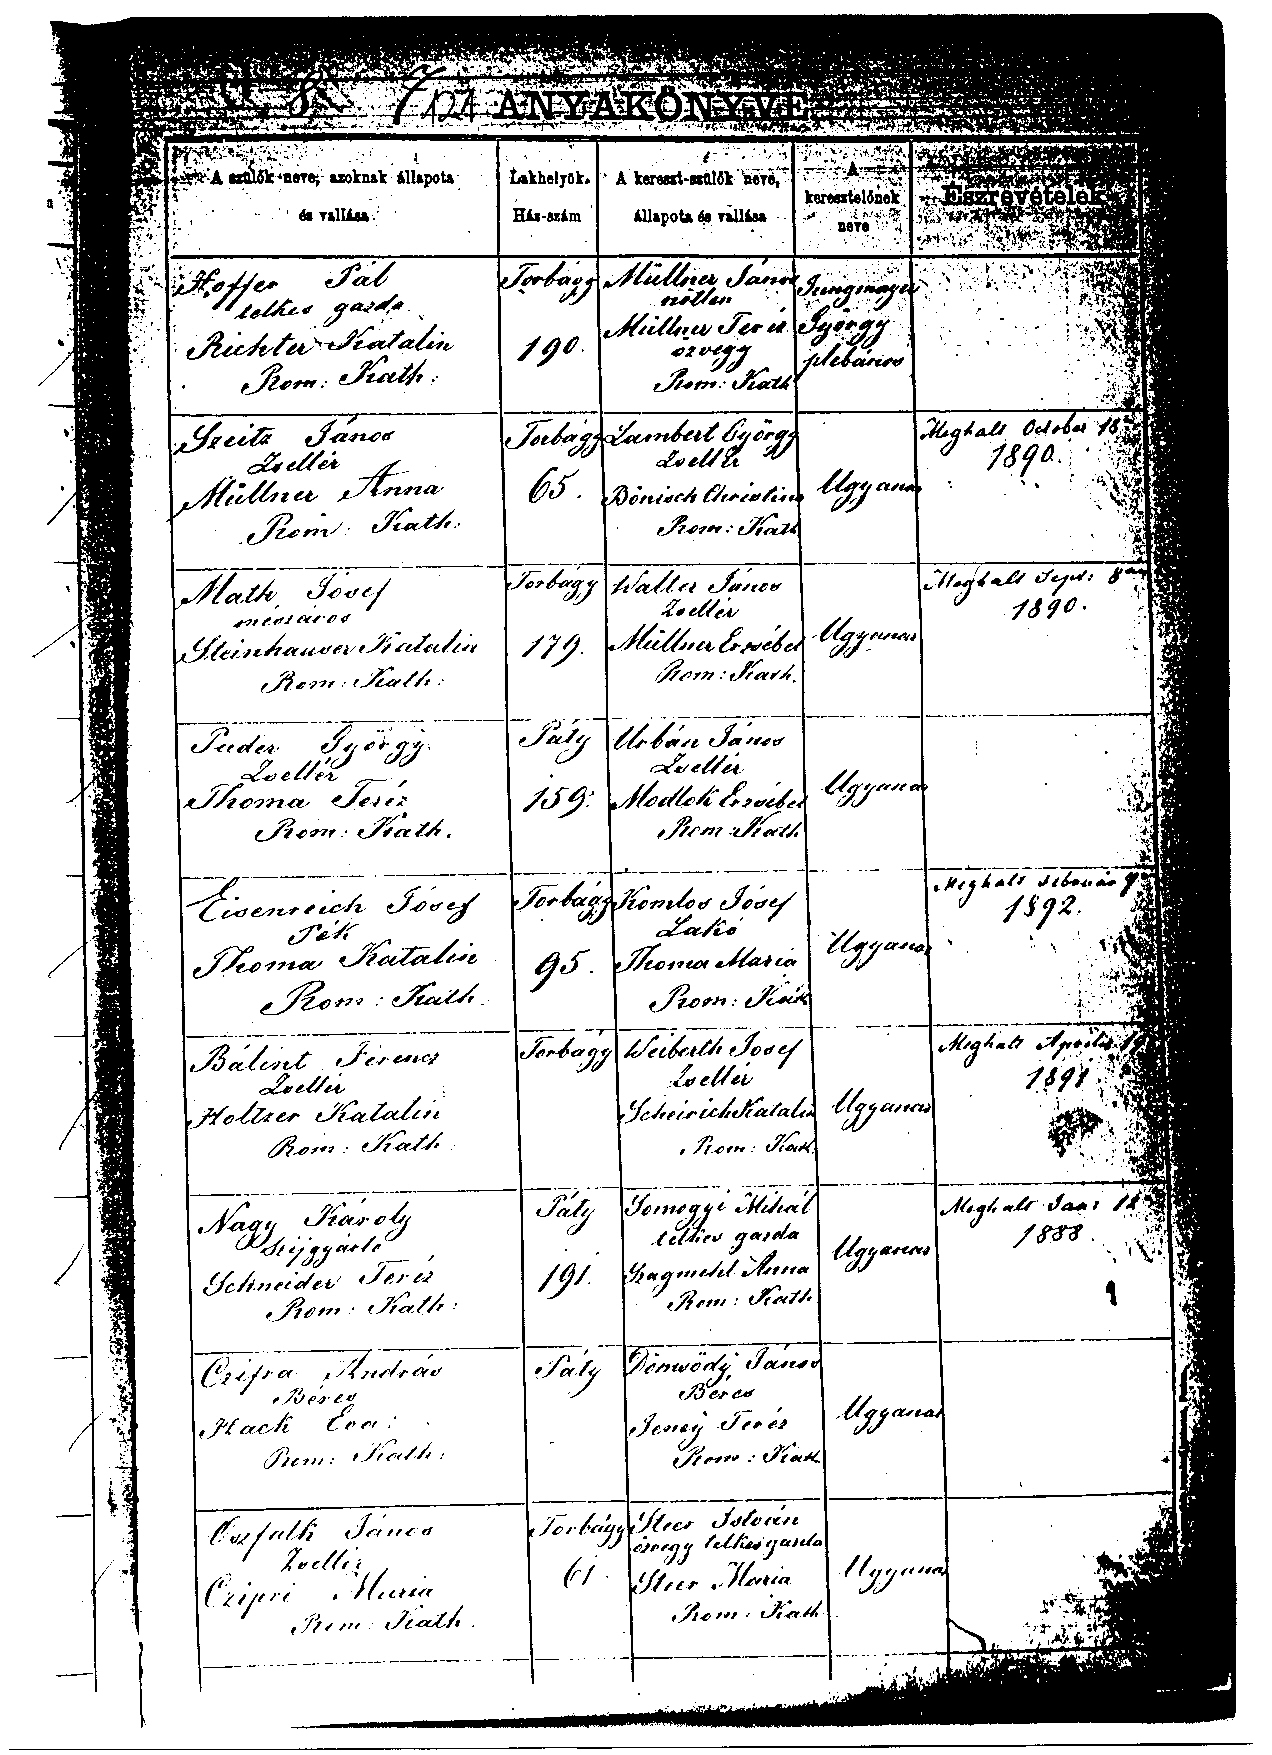 7 124 ANYAKÖNYVE.
A szülők neve, azoknak állapota
és vallása.
Lakhelyök.
Ház-szám
A kereszt-szülők neve,
állapota és vallása
A
keresztelőnek
neve
Észrevételek
Hoffer Pál
telkes gazda
Richter Katalin
Rom: Kath:
Torbágy
190.
Müllner János
nőtlen
Müllner Teréz
özvegy
Rom: Kath
Jungmayer
György
plébános
Szeitz János
Zsellér
Müllner Anna
Rom: Kath:
Torbágy
65.
Lambert György
Zsellér
Bönisch Christina
Rom: Kath
Ugyanaz
Meghalt October 18
1890.
Math Jósef
mészáros
Steinhauser Katalin
Rom: Kath:
Torbágy
179.
Walter János
Zsellér
Müllner Erzsébet
Rom: Kath.
Ugyanaz
Meghalt Sept: 8
1890.
Puder György
Zsellér
Thoma Teréz
Rom: Kath.
Páty
159.
Urbán János
Zsellér
Modlok Erzsébet
Rom: Kath
Ugyanaz
Eisenreich Jósef
Pék
Thoma Katalin
Rom: Kath.
Torbágy
95.
Komlos Jósef
Lakó
Thoma Maria
Rom: Kath
Ugyanaz
Meghalt Február 9
1892.
Bálint Ferencz
Zsellér
Holtzer Katalin
Rom: Kath.
Torbágy
Weiberth Josef
Zsellér
Scheirich Katalin
Rom: Kath.
Ugyanaz
Meghalt Április 19
1891
Nagy Károly
Szijgyártó
Schneider Teréz
Rom: Kath:
Páty
191.
Somogyi Mihál
telkes gazda
Szagmeht Anna
Rom: Kath
Ugyanaz
Meghalt Jan: 12
1888.
Czifra András
Béres
Hack Éva:
Rom: Kath:
Páty
Dömsödy János
Béres
Jeney Teréz
Rom: Kath
Ugyanaz
Oszfalk János
Zsellér
Czipri Maria
Rom: Kath.
Torbágy
61.
Steer István
özvegy telkes gazda
Steer Maria
Rom: Kath
Ugyanaz